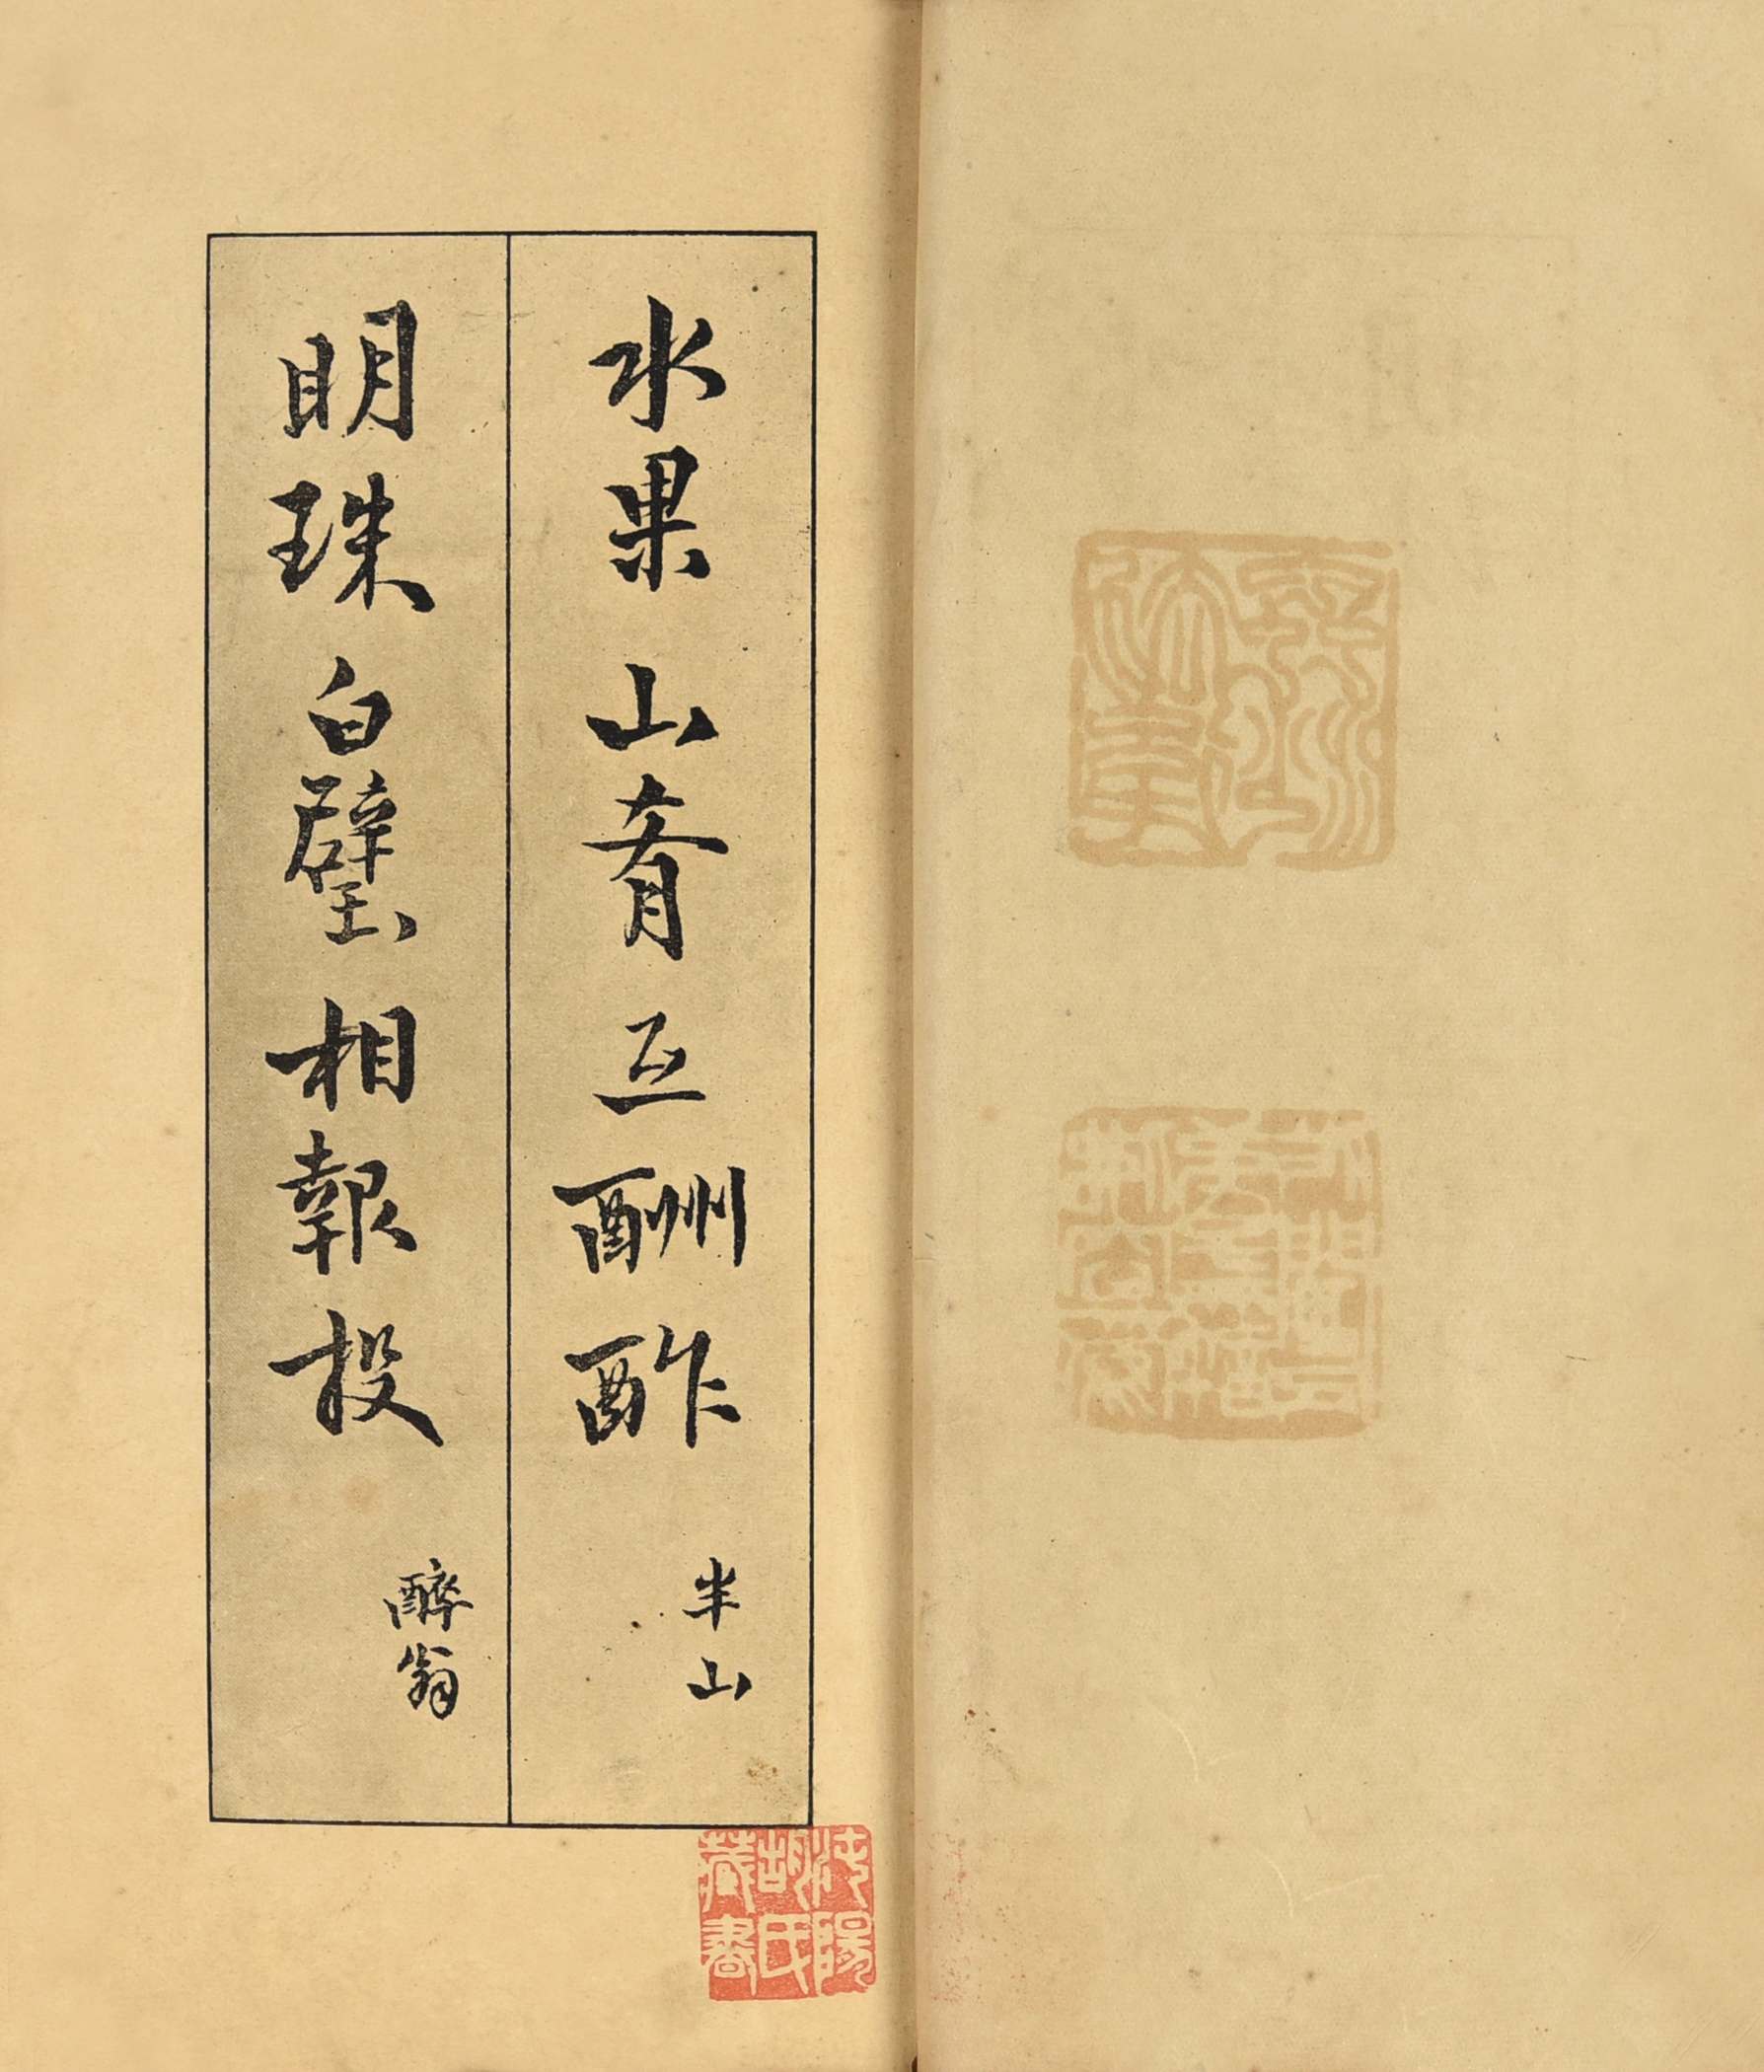 水果山肴互酬酢
半山
明珠白璧相報投
醉翁
沈陽
胡氏
藏書